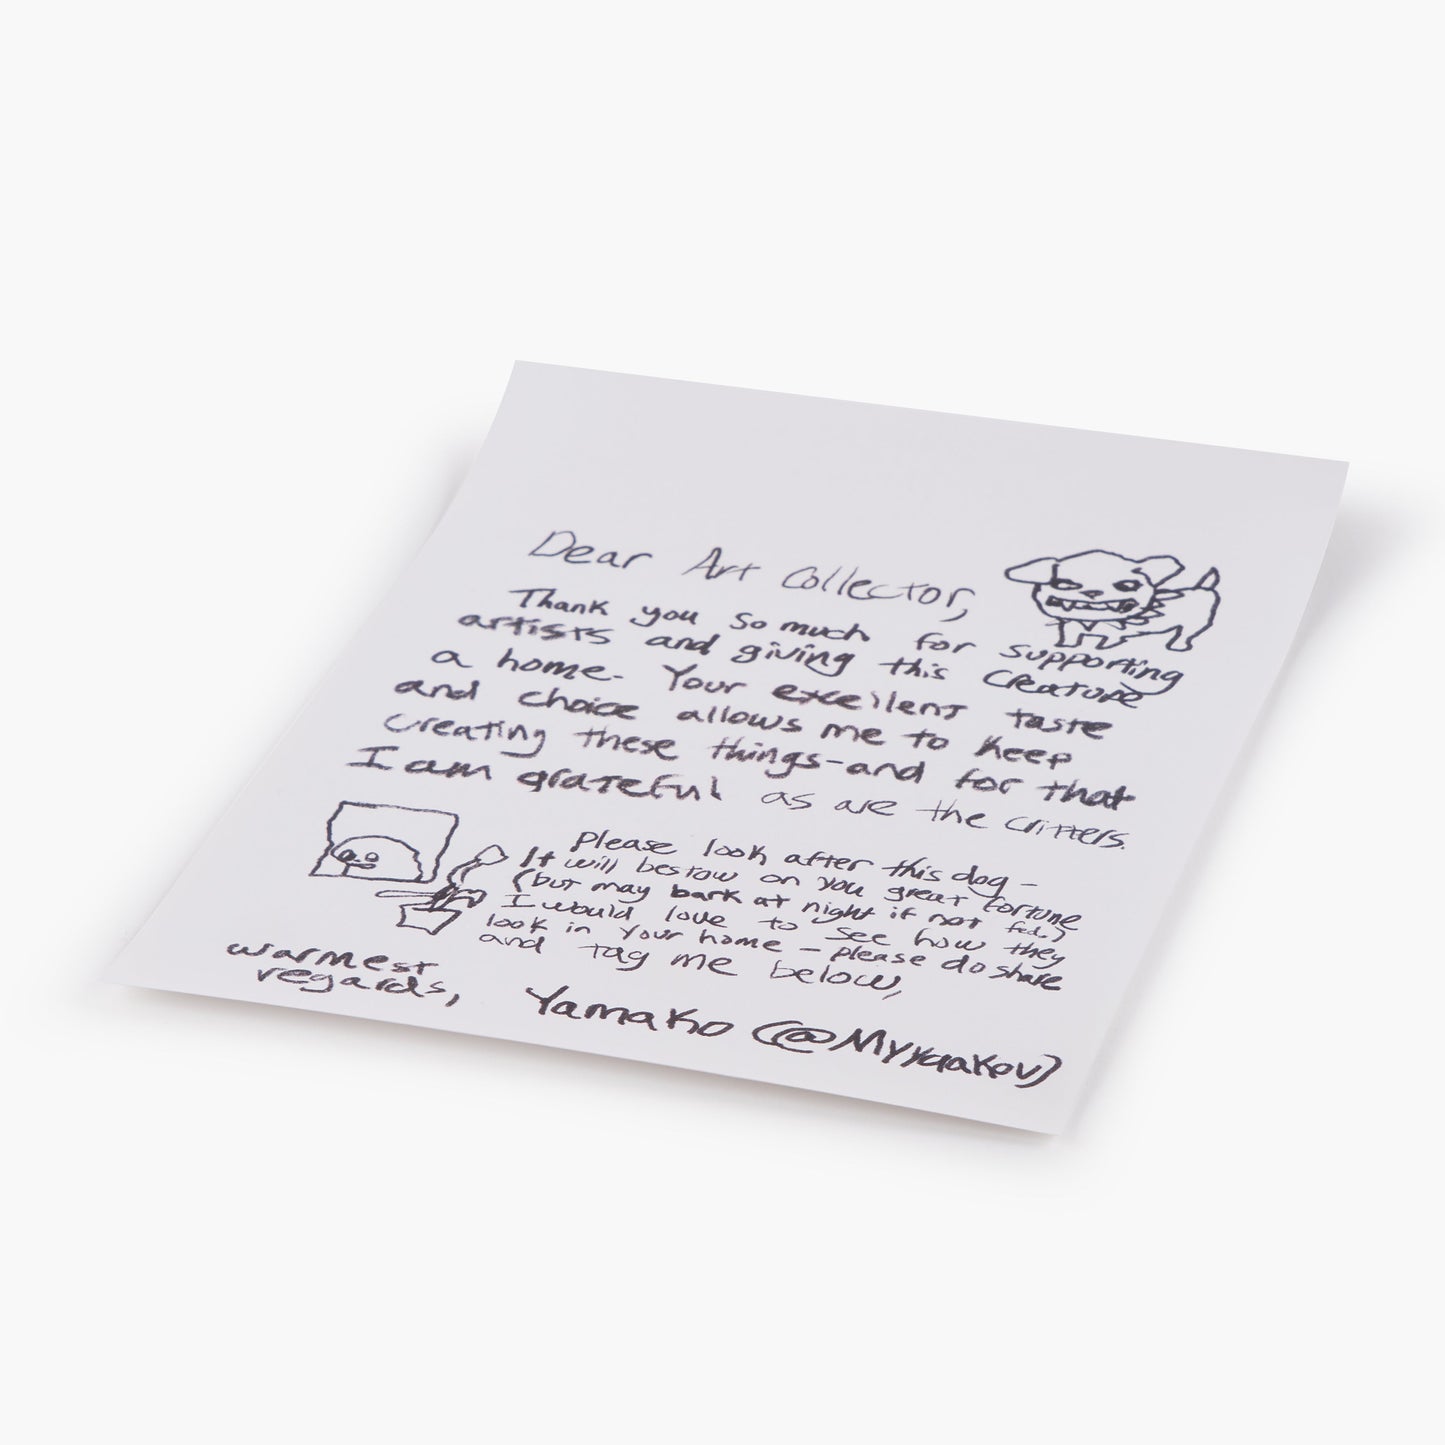 Dear Art Collector,
Thank you so much for supporting
artists and giving this creature
a home. Your excellent taste
and choice allows me to keep
creating these things-and for that
I am grateful as are the critters.
Please look after this dog -
It will bestow on you great fortune
(but may bark at night if not fed.)
I would love to see how they
look in your home - please do share
and tag me below,
warmest
regards,
Yamako (@Myyaakov)